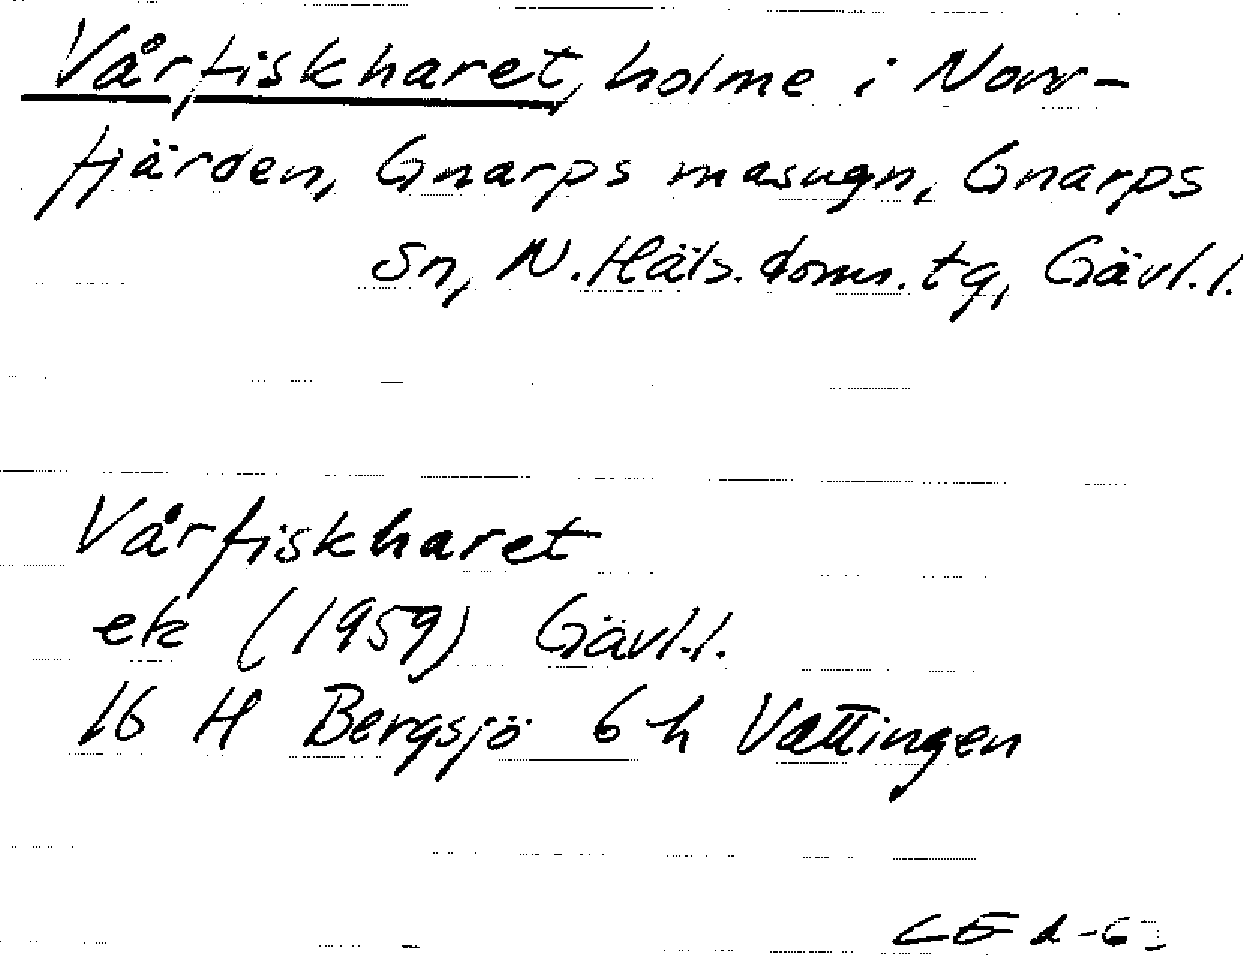 Vårfiskharet, holme i Norr-
fjärden, Gnarps masugn, Gnarps
sn, N. Häls. doms. tg, Gävl. l.
Vårfiskharet
ek (1959) Gävl. l.
16 H Bergsjö 6 h Vattingen